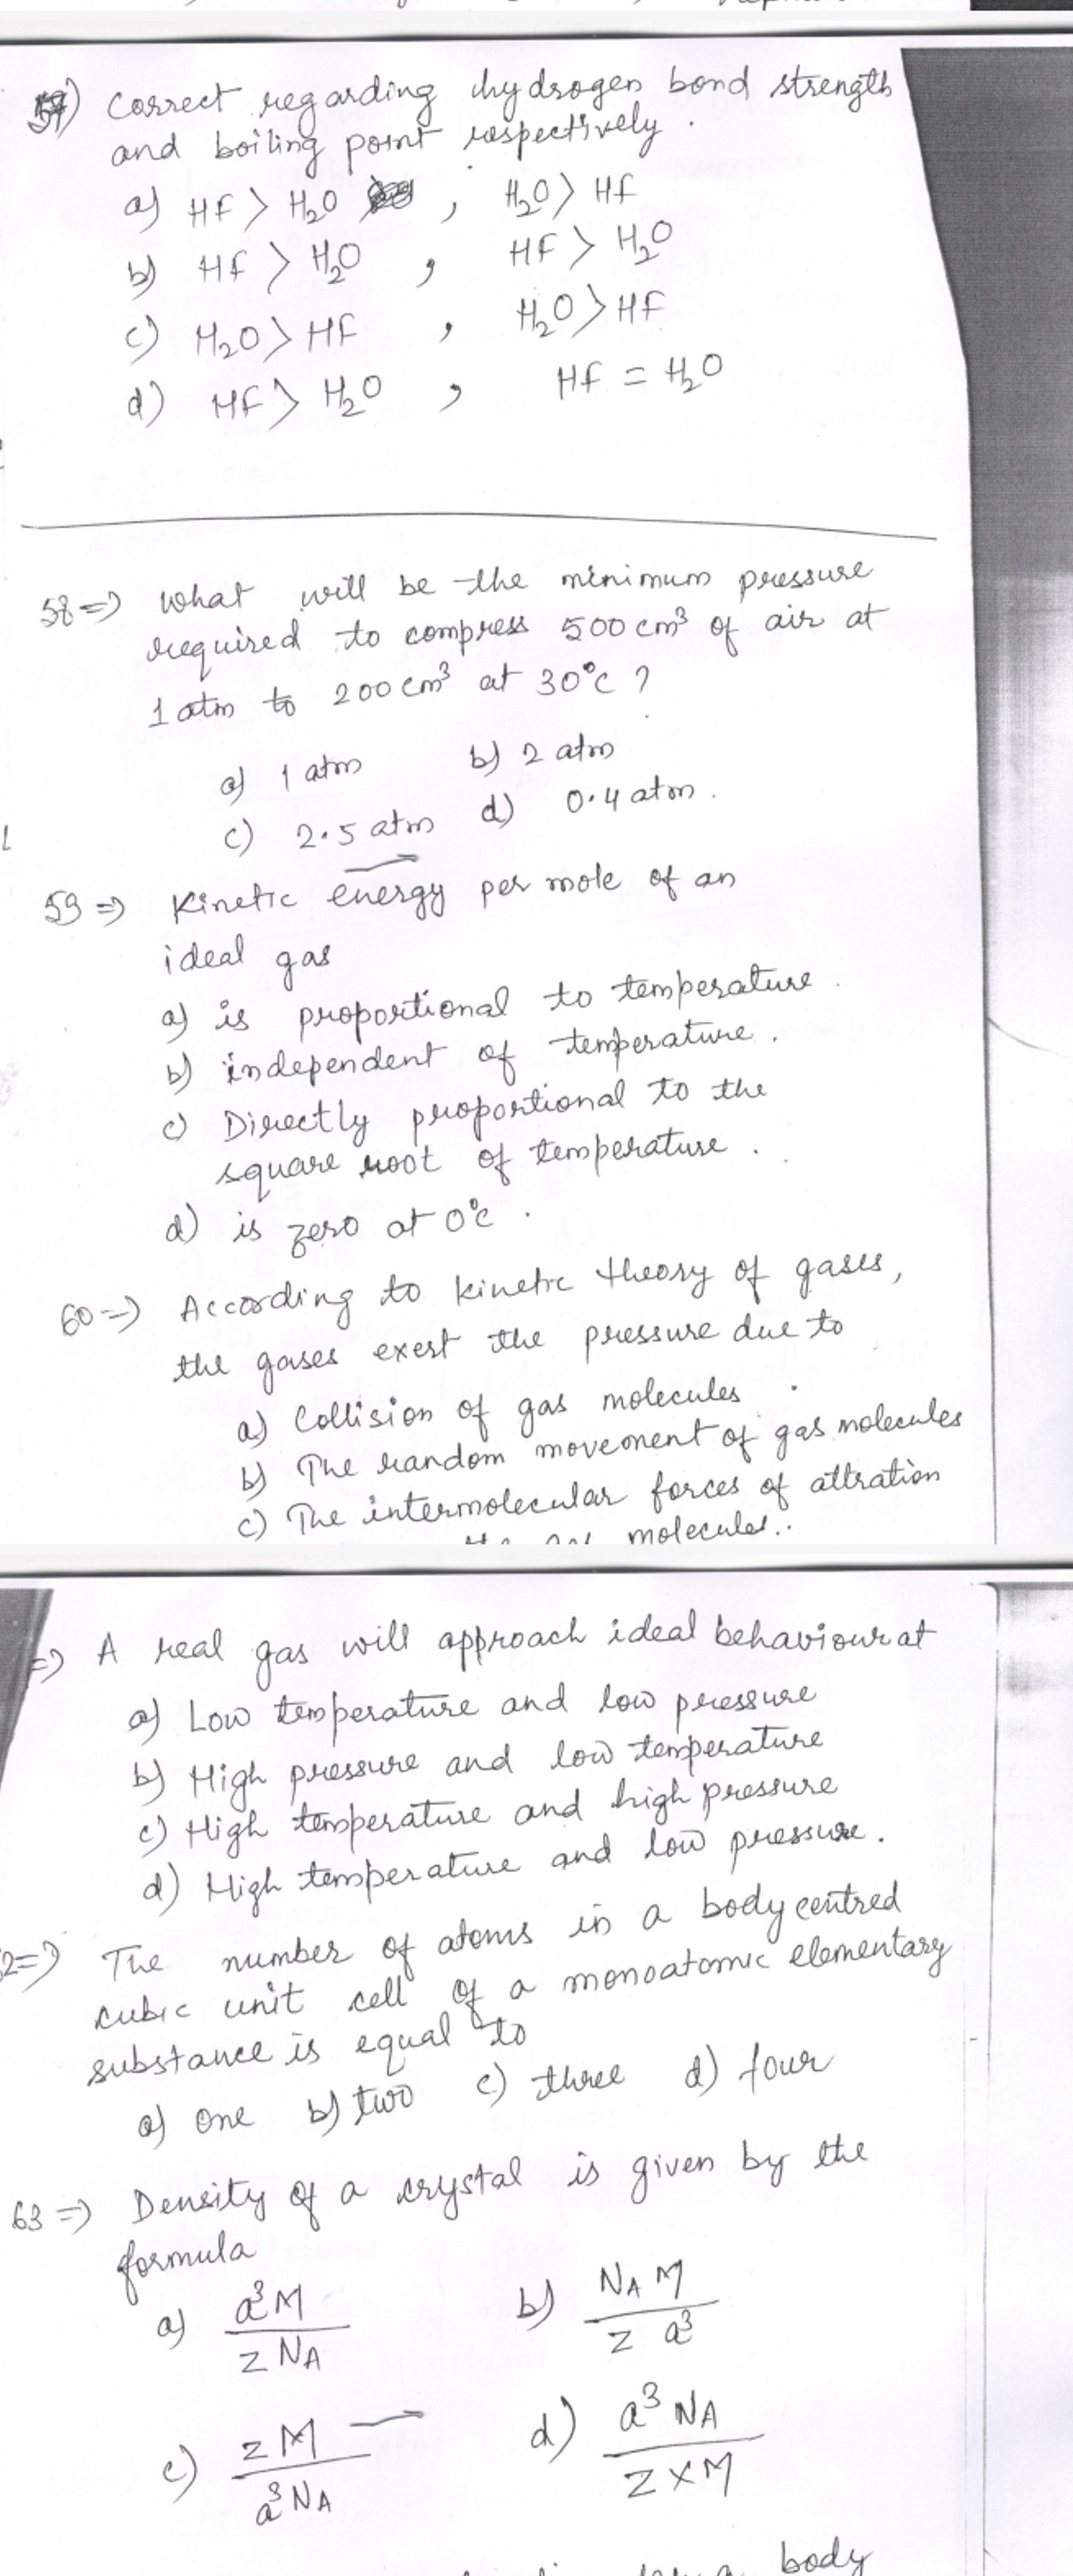 57) Correct regarding hydrogen bond strength
and boiling point respectively.
a) HF > H₂O , H₂O > HF
b) HF > H₂O , HF > H₂O
c) H₂O > HF , H₂O > HF
d) HF > H₂O , HF = H₂O
58 => What will be the minimum pressure
required to compress 500 cm³ of air at
1 atm to 200 cm³ at 30°C ?
a) 1 atm b) 2 atm
c) 2.5 atm d) 0.4 atm.
59 => Kinetic energy per mole of an
ideal gas
a) is proportional to temperature.
b) independent of temperature.
c) Directly proportional to the
square root of temperature.
d) is zero at 0°C.
60 => According to kinetic theory of gases,
the gases exert the pressure due to
a) Collision of gas molecules.
b) The random movement of gas molecules
c) The intermolecular forces of attration
the gas molecules..
=> A real gas will approach ideal behaviour at
a) Low temperature and low pressure
b) High pressure and low temperature
c) High temperature and high pressure
d) High temperature and low pressure.
2 => The number of atoms in a body centred
cubic unit cell of a monoatomic elementary
substance is equal to
a) one b) two c) three d) four
63 => Density of a crystal is given by the
formula
a) a³M / z N_A b) N_A M / z a³
c) z M / a³ N_A d) a³ N_A / z × M
a body